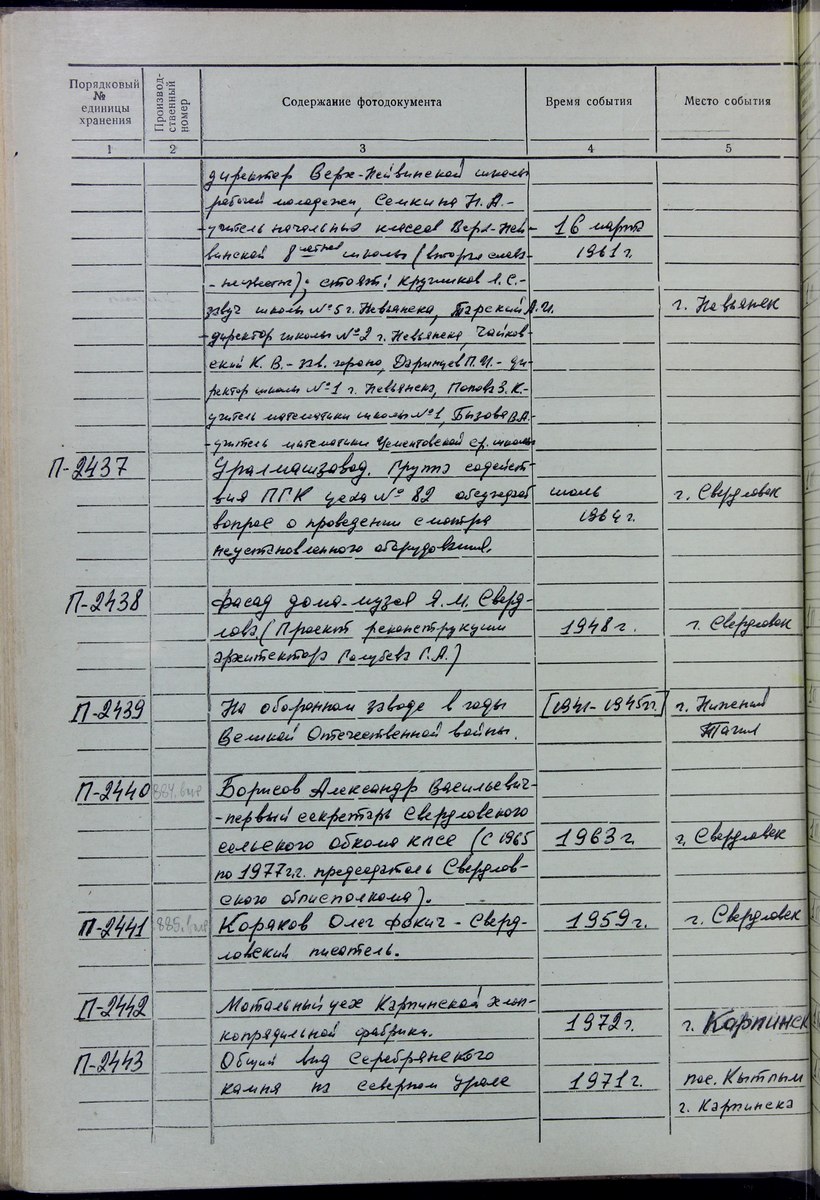 Порядковый № единицы хранения
Производственный номер
Содержание фотодокумента
Время события
Место события
1 2 3 4 5
директор Верх-Нейвинской школы
рабочей молодежи, Семкина Н.А.-
-учитель начальных классов Верх-Ней- 16 марта
винской 8 летней школы (вторая слева 1961 г.
); стоят: Кругликов А.С.-
завуч школы №5 г. Невьянска, Тарский А.И. г. Невьянск
-директор школы №2 г. Невьянска, Чайков-
ский К.В.- зав. гороно, Даринцев П.И.- ди-
ректор школы №1 г. Невьянска, Попова З.К.-
учитель математики школы №1, Бызова В.А.-
-учитель математики Цементовской ср. школы
П-2437 Уралмашзавод. Группа содейст-
вия ПГК цеха №82 обсуждает июль г. Свердловск
вопрос о проведении смотра 1964 г.
неустановленного оборудования.
П-2438 Фасад дома-музея Я.М. Сверд-
лова (Проект реконструкции 1948 г. г. Свердловск
архитектора Голубева Г.А.)
П-2439 На оборонном заводе в годы [1941-1945гг.] г. Нижний
Великой Отечественной войны. Тагил
П-2440 Борисов Александр Васильевич-
-первый секретарь Свердловского
сельского обкома КПСС (с 1965 1963 г. г. Свердловск
по 1977 г.г. председатель Свердлов-
ского облисполкома).
П-2441 Коряков Олег Фокич - Сверд- 1959 г. г. Свердловск
ловский писатель.
П-2442 Мотальный цех Карпинской хлоп-
копрядильной фабрики. 1972 г. г. Карпинск
П-2443 Общий вид Серебрянского
камня на северном Урале 1971 г. пос. Кытлым
г. Карпинска